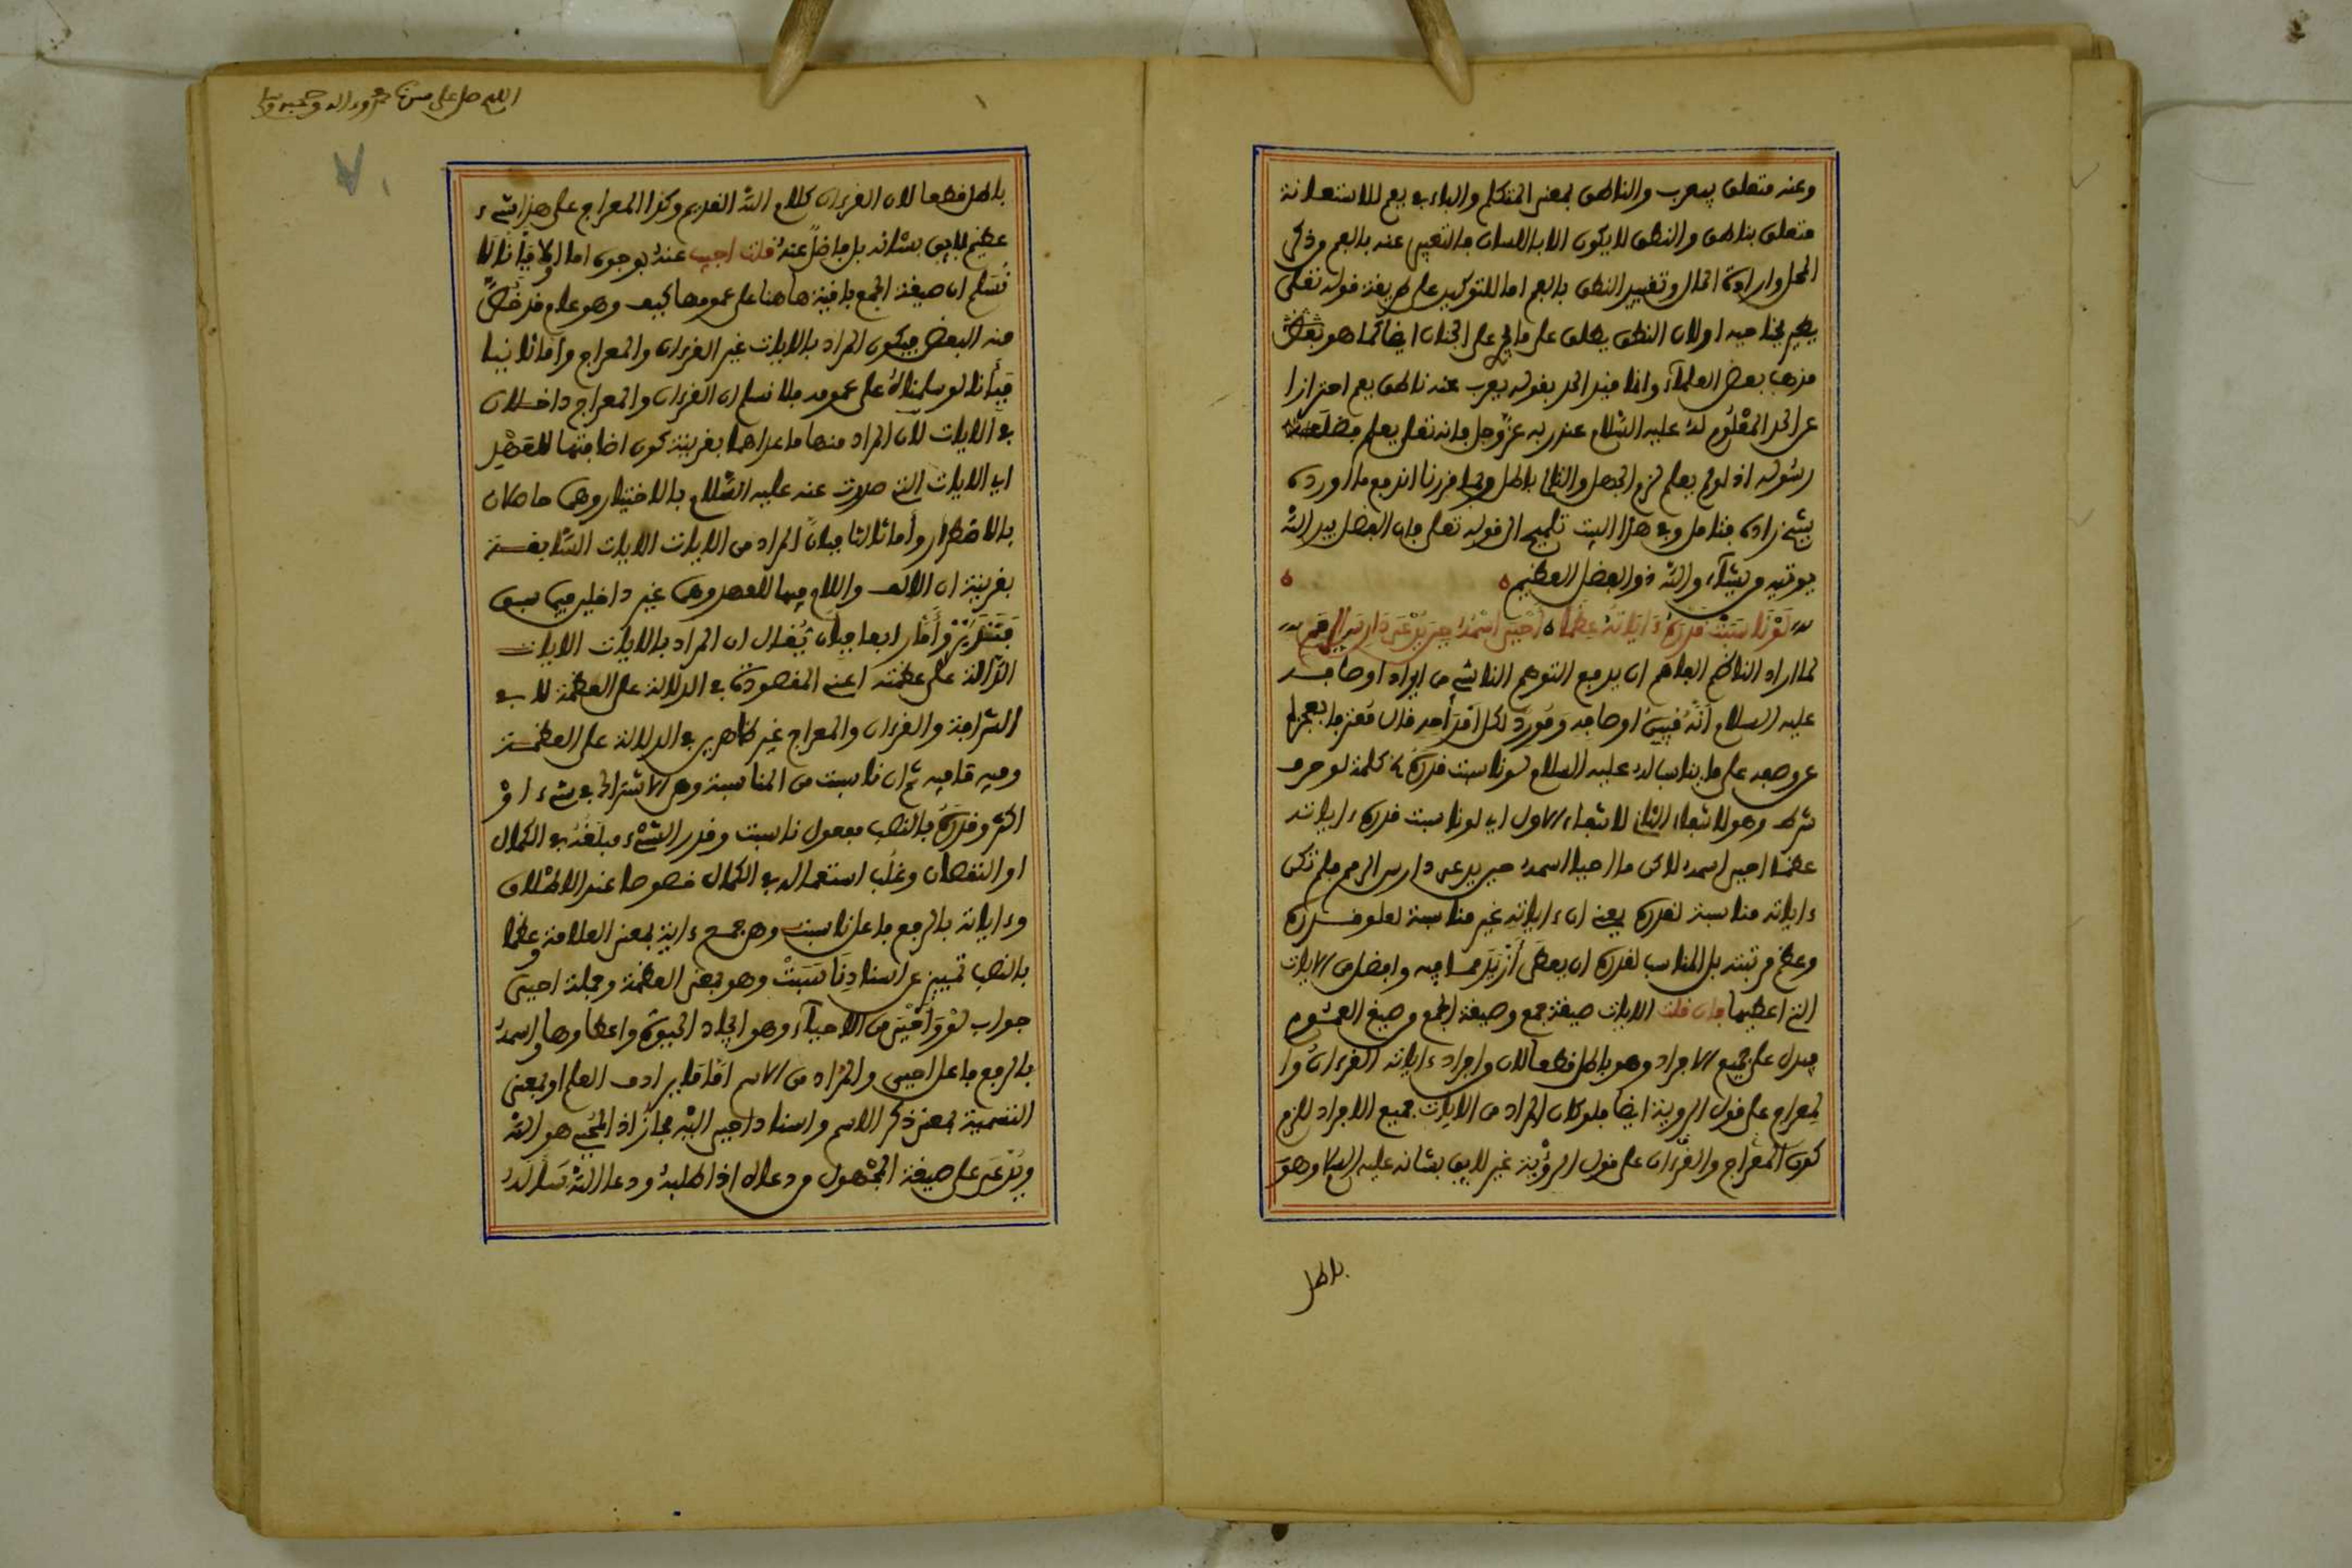 وعنه متعلق بيعرب والناطق بمعنى المتكلم والباء في بفم للاستعانة
متعلق بناطق والنطق لا يكون الا باللسان فالتعبير عنه بالفم وذكر
المحل وارادة الحال وتقييد النطق بالفم اما للتوكيد على طريقة قوله تعالى
يطير بجناحيه او لان النطق يطلق على ما في الجنان ايضا كما هو
مذهب بعض العلماء وانما قيد الحد بقوله يعرب عنه ناطق بفم احترازا
عن الحد المعلوم له عليه السلام عند ربه عز وجل فانه تعالى يعلم فضل
رسوله اذ لو لم يعلم لزم الجهل والتالي باطل وبما قررنا اندفع ما اورده
شيخ زاده فتامل وفي هذا البيت تلميح الى قوله تعالى فان الفضل بيد الله
يوتيه من يشاء والله ذو الفضل العظيم
لَوْ نَاسَبَتْ قَدْرَهُ ءَايَاتُهُ عِظَمًا ه أَحْيَى اسْمُهُ حِينَ يُدْعَى دَارِسَ الرِّمَمِ
لما اراد الناظم الفاهم ان يدفع التوهم الناشي من ايراد اوصافه
عليه السلام أنه اوصافه ومورد لكل قال بعجزه
عن وصفه على ما يناسب له عليه السلام لو ناسبت قدره كلمة لو حرف
شرط وهو لانتفاء الثاني لانتفاء الاول اي لو ناسبت قدره ءاياته
عظما احيى اسمه لاكن ما احيا اسمه حين يدعى دارس الرمم فلم تكن
ءاياته مناسبة لقدره يعني ان ءاياته غير مناسبة لعلو قدره
وعظم مرتبته بل المناسب لقدره ان يعطى أزيد مما فيه وافضل من الايات
التي اعطيها فان قلت الايات صيغة جمع وصيغة الجمع من صيغ العموم
فيدل على جميع الافراد وهو باطل قطعا لان من افراد ءاياته القرءان وا
لمعراج على قول الروية ايضا فلو كان المراد من الايات جميع الافراد للزم
كون المعراج والقرءان على قول الرؤية غير لايق بشانه عليه السلام وهو
باطل
اللهم صل على سيدنا محمد وءاله وصحبه وسلم
باطل قطعا لان القرءان كلام الله القديم وكذا المعراج على هذا شيء
عظيم لايق بشانه بل فاضل عنه قلت اجيب عنه بوجوه اما اولا فبأنا لا
نسلم ان صيغة الجمع باقية هاهنا على عمومها كيف وهو عام قد خص
منه البعض فيكون المراد بالايات غير القرءان والمعراج وأما ثانيا
فبأنا لو سلمناه على عمومه فلا نسلم ان القرءان والمعراج داخلان
في الايات لان المراد منها ما عداهما بقرينة كون اضافتها للعهد
اي الايات التي صدرت عنه عليه السلام بالاختيار وهما حاصلان
بالاضطرار وأما ثالثا فبأن المراد من الايات الايات السابقة
بقرينة ان الالف واللام فيها للعهد وهما غير داخلين فيما سبق
وأما رابعا فبأن يقال ان المراد بالايات الايات
الدالة على عظمته اعني المقصودة في الدلالة على العظمة لا في
الشرافة والقرءان والمعراج غير ظاهرين في الدلالة على العظمة
وفيه ما فيه ثم ان ناسبت من المناسبة وهي الاشتراك في شيء او
اكثر وقدره بالنصب مفعول ناسبت وقدر الشيء مبلغه في الكمال
او النقصان وغلب استعماله في الكمال خصوصا عند الاطلاق
وءاياته بالرفع فاعل ناسبت وهي جمع ءاية بمعنى العلامة وعظما
بالنصب تمييز عن اسناد ناسبت وهو بمعنى العظمة وجملة احيى
جواب لو وأحيى من الاحياء وهو ايجاد الحيوة واعطاوها واسمه
بالرفع فاعل احيى والمراد من الاسم اما ما يرادف العلم او بمعنى
التسمية بمعنى ذكر الاسم واسناد احيى اليه مجاز اذ المحيي هو الله
ويدعى على صيغة المجهول من دعاه اذا طلبه ودعا الله سأله